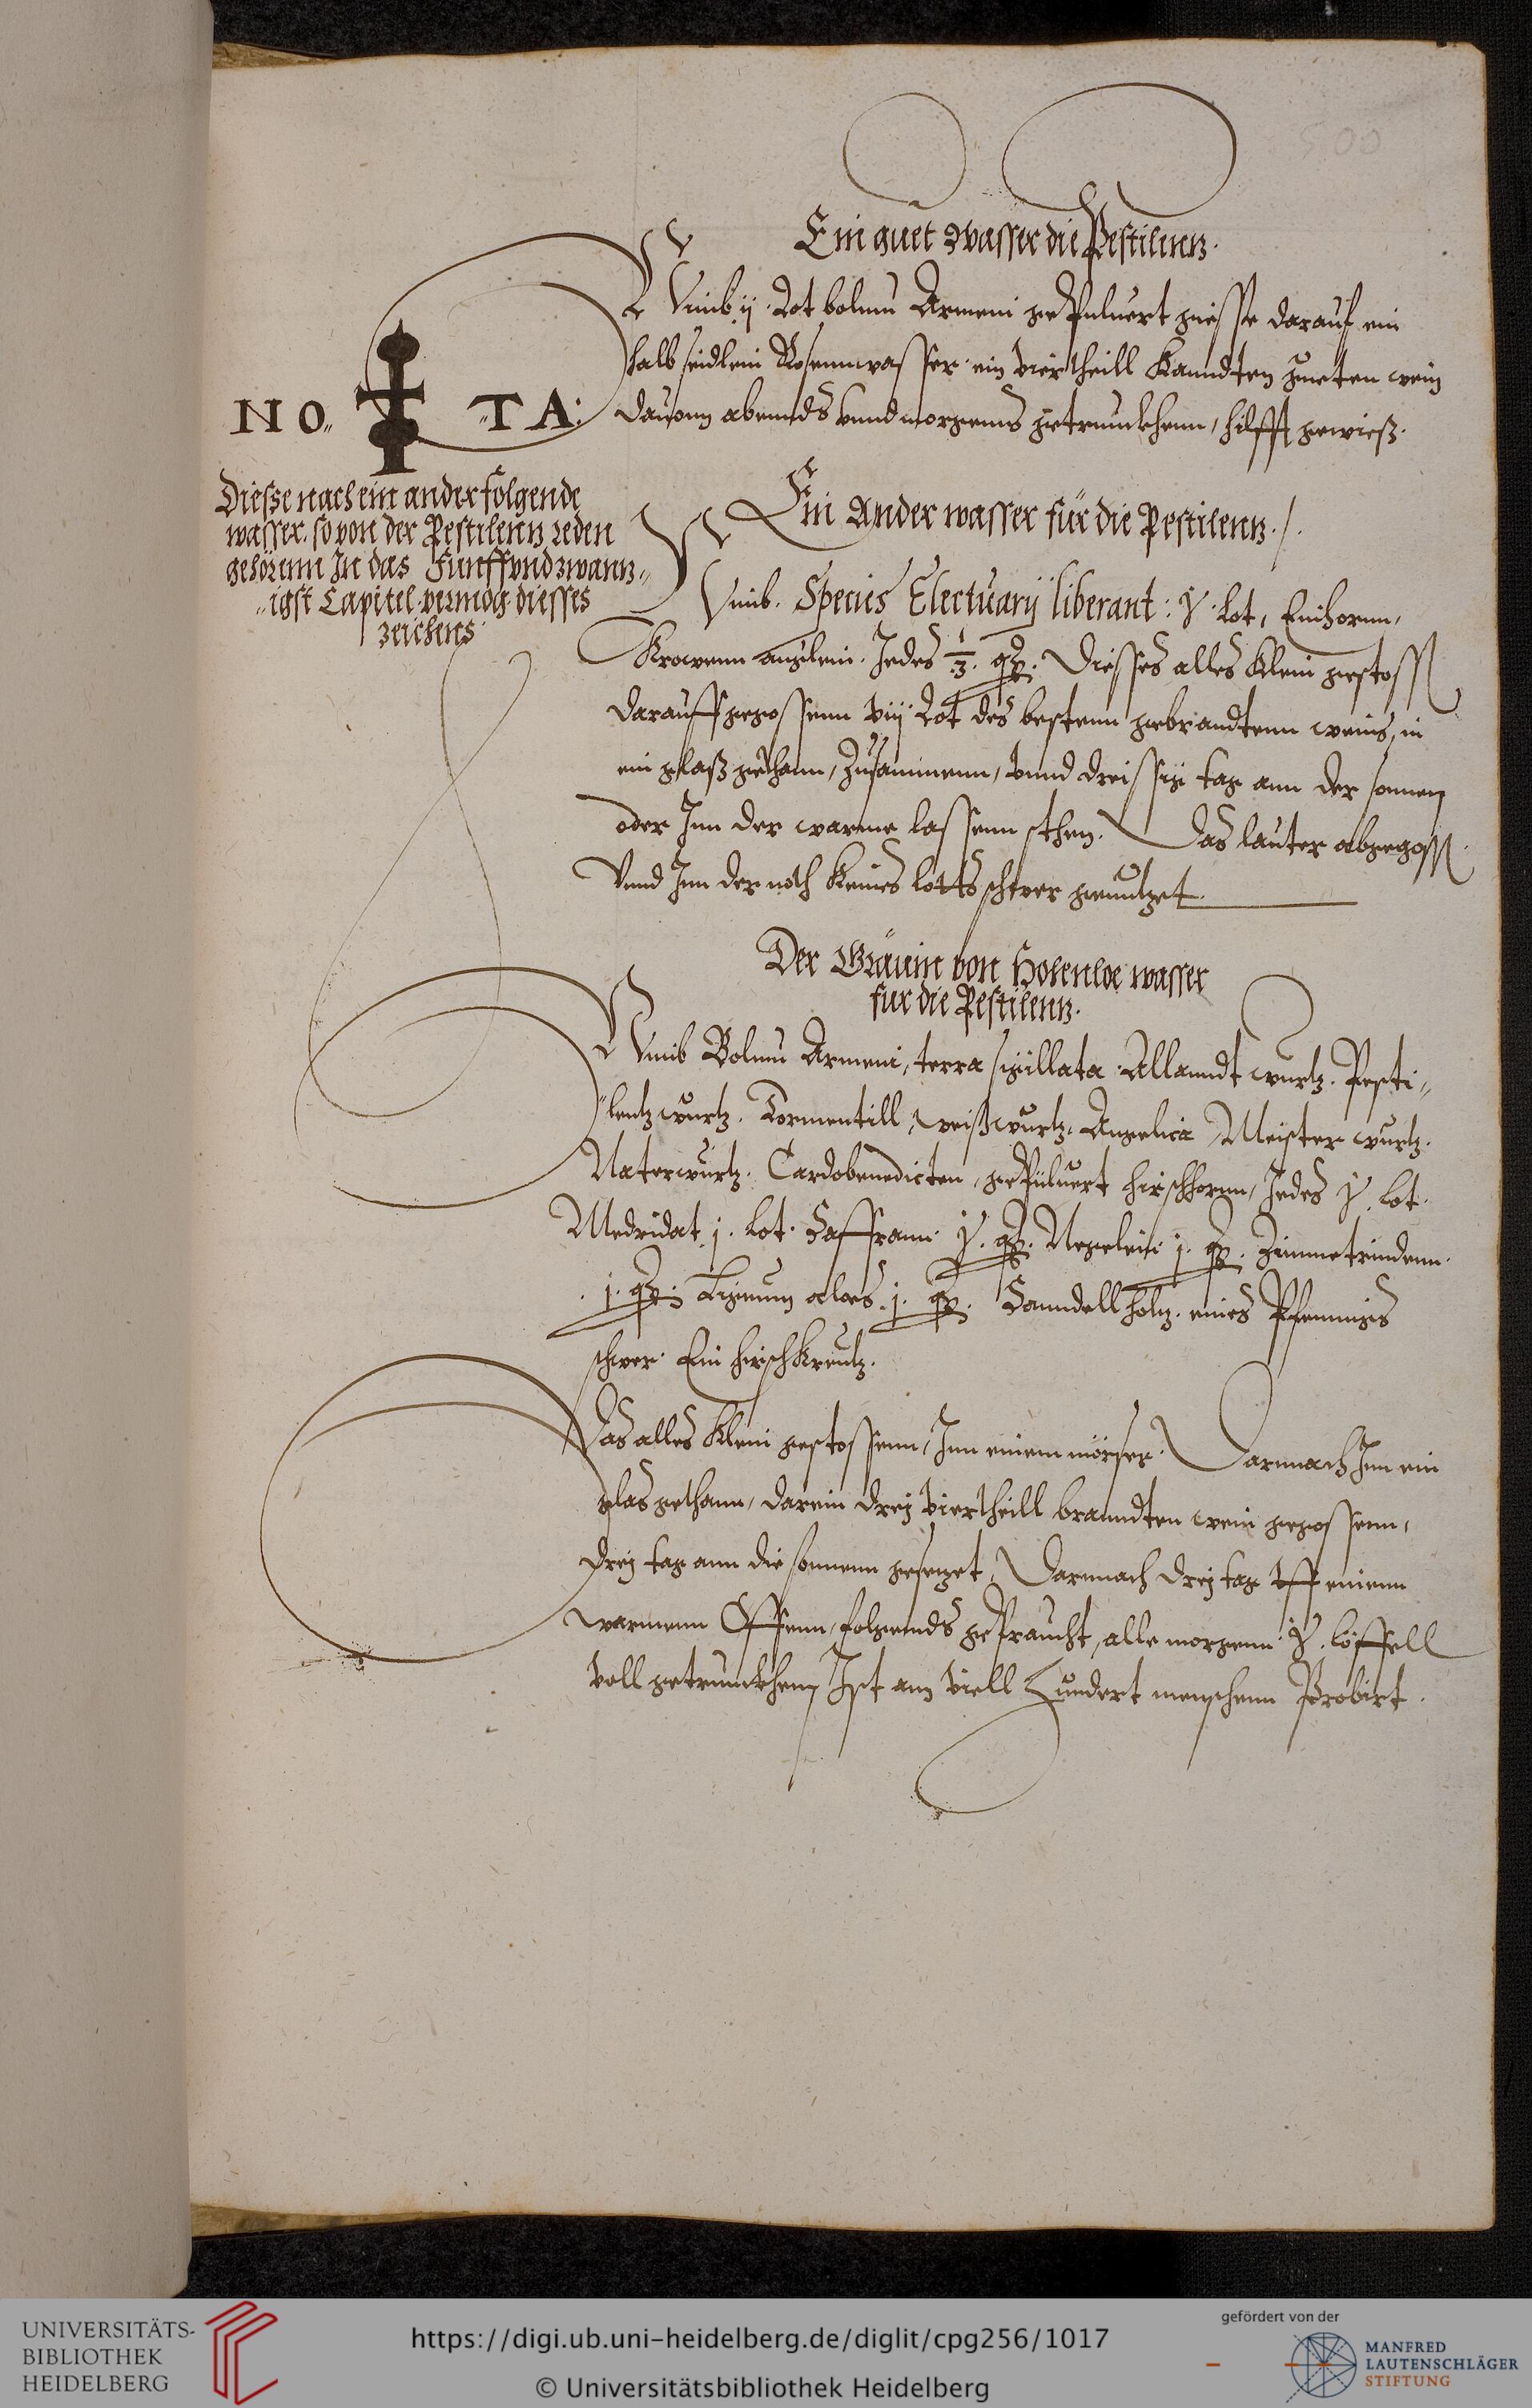 500
Ein guet Wasser die Pestilenz.
Nimb ij. Lot bolenn Armeni gepuluert giesse darauf ein
halb seidlein Rosennwasser ein viertheill kanndten gueten wein
dauonn abennds vnnd morgenns getrunckhenn, hilfft gewiess.
NO„ „TA:
Diesse nach ein ander folgende
wasser so von der Pestilenz reden
gehörenn In das Funffvndzwann„
„igst Capitel vermög diesses
zeichens
Ein Ander wasser für die Pestilenz. /.
Nimb. Species Electuarij liberant: ij. lot, Einhornn,
Krawenn auglein. Jedes 1/3. qz. Diesses alles klein gestoss
darauff gegossenn viij Lot des bestenn gebrandtenn weins, in
ein glass gethann, zusammenn, vnnd dreissig tag ann der sonnen
oder Inn der warme lassenn sthen. Das lauter abgegoss
Vnnd Inn der noth keines lotts schwer genutzet.
Der Gräuin von Hohenloe wasser
fur die Pestilenz.
Nimb Bolenn Armeni, terra sigillata Allanndt wurtz. Pesti„
„lentz wurtz. Tormentill, weisswurtz. Angelica Meister wurtz.
Naterwurtz. Cardobenedicten, gepuluert hirschhornn, Jedes ij. lot.
Medridat j. lot. Saffrann ij. qz. Negelein j. qz. Zimmetrindenn.
j. qz. Lignum aloes j. qz. Sanndell holtz. eines Pfennigs
schwer. Ein hirschkreutz.
Das alles klein gestossenn, Inn einem mörser. Darnnach Inn ein
glas gethann, darein drej viertheill branndten wein gegossenn,
drej tag ann die sonnenn gesetzet, Darnnach drej tag vff einenn
warmenn Offenn, folgennds gepraucht, alle morgenn ij. löffell
voll getrunckhenn, Ist ann viell hundert menschenn Probirt.
UNIVERSITÄTS-
BIBLIOTHEK
HEIDELBERG
https://digi.ub.uni-heidelberg.de/diglit/cpg256/1017
© Universitätsbibliothek Heidelberg
gefördert von der
MANFRED
LAUTENSCHLÄGER
STIFTUNG